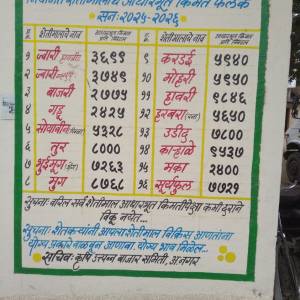 नियंत्रित शेतीमालाचे आधारभूत किंमत फलक
सन:२०२५-२०२६
शेतीमालाचे नाव
१ ज्वारी ३६९९
२ ज्वारी ३७४९
३ बाजरी २७७५
४ गहू २४२५
५ सोयाबीन ५३२८
६ तुर ८०००
७ भुईमुग (शेंगा) ७२६३
८ मुग ८७६८
शेतीमालाचे नाव
९ करडई ५९४०
१० मोहरी ५९५०
११ हावरी ९८४६
१२ हरबरा ५६५०
१३ उडीद ७८००
१४ काऱ्हाळे ९५३७
१५ मका २४००
१६ सूर्यफुल ७७२१
सुचना: वरील सर्व शेतीमाल आधारभूत किंमतीपेक्षा कमी दराने
विकू नयेत...
सुचना: शेतकऱ्यांनी आपला शेतीमाल विक्रिस आणतांना
योग्य प्रकारे वाळवून आणावा. योग्य भाव मिळेल..
सचिव: कृषि उत्पन्न बाजार समिती, अ.नगर